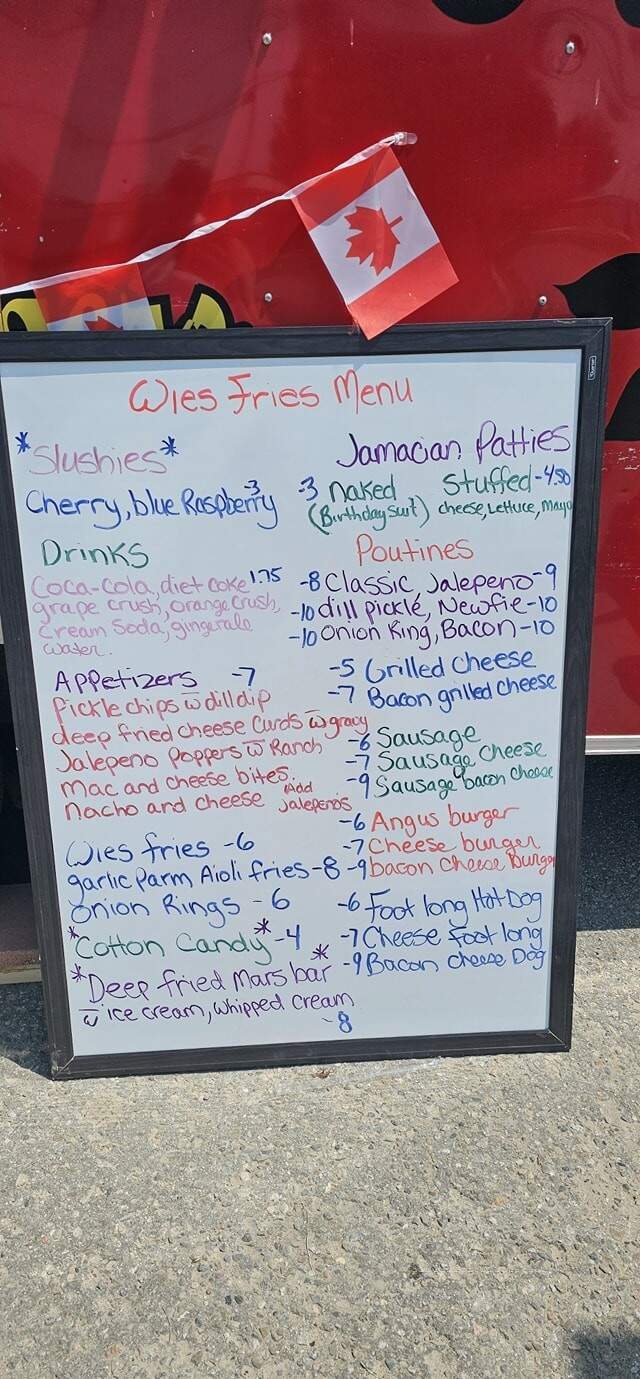 Wies Fries Menu
*Slushies*
Cherry, blue Raspberry -3
Drinks
Coca-Cola, diet coke 1.75
grape crush, orange crush,
Cream Soda, gingerale
water.
Appetizers -7
Pickle chips w̅ dill dip
deep fried cheese Curds w̅ gravy
Jalepeno Poppers w̅ Ranch
Mac and cheese bites.
Nacho and cheese Add Jalepeños
Wies fries -6
garlic Parm Aioli fries -8
Onion Rings - 6
*Cotton Candy* -4
*Deep fried Mars bar*
w̅ ice cream, whipped cream
-8
Jamacian Patties
-3 naked Stuffed -4.50
(Birthday Suit) cheese, Lettuce, Mayo
Poutines
-8 Classic, Jalepeno -9
-10 dill pickle, Newfie -10
-10 Onion Ring, Bacon -10
-5 Grilled Cheese
-7 Bacon grilled cheese
-6 Sausage
-7 Sausage Cheese
-9 Sausage bacon cheese
-6 Angus burger
-7 Cheese burger
-9 bacon Cheese Burger
-6 Foot long Hot Dog
-7 Cheese Foot long
-9 Bacon cheese Dog